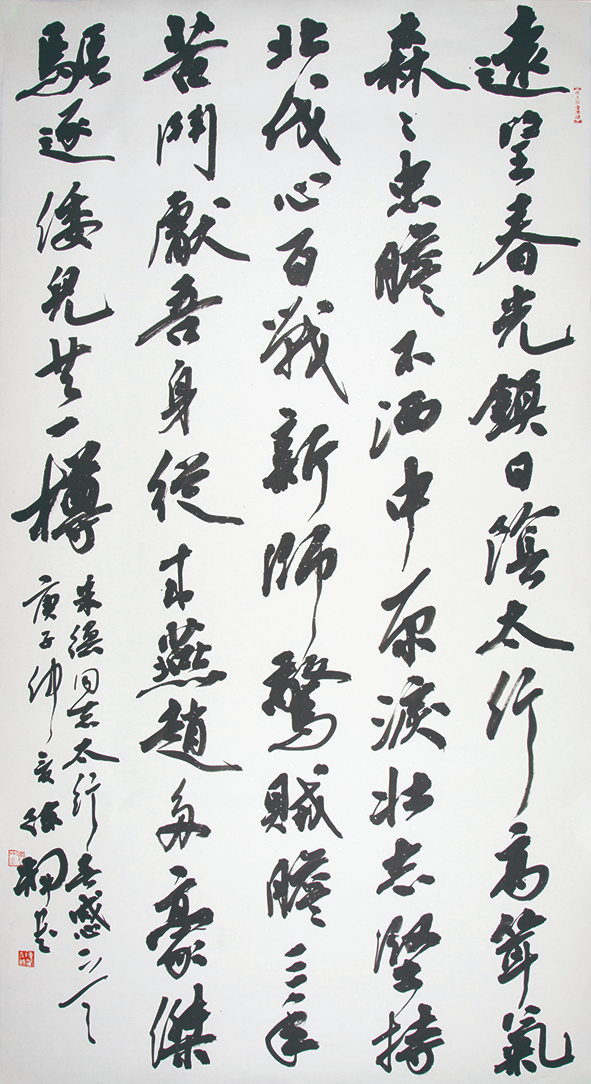 遠望春光鎮日陰太行高聳氣
森〻忠膽不洒中原淚壯志堅持
北伐心百戰新師驚賊膽三年
苦鬥獻吾身從來燕趙多豪傑
驅逐倭兒共一樽
朱德同志太行春感
庚子仲夏徐